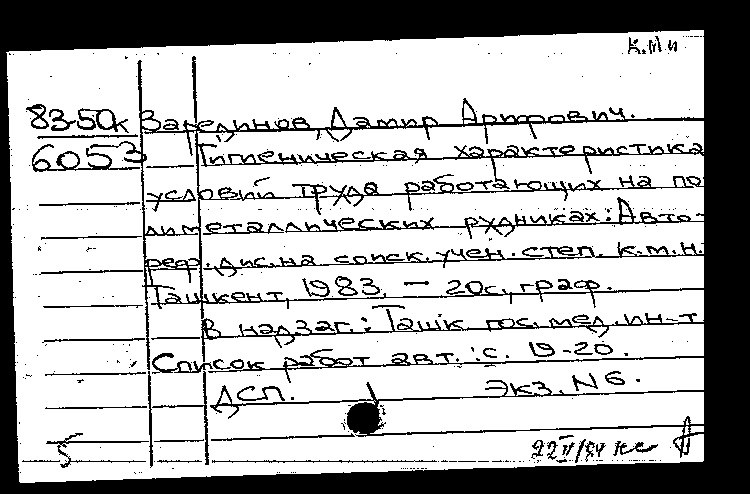 К.М н
83-50к Зарединов, Дамир Арифович.
6053 Гигиеническая характеристика
условий труда работающих на по-
лиметаллических рудниках: Авто-
реф. дис. на соиск. учен. степ. к.м.н.
Ташкент, 1983. — 20с., граф.
В надзаг.: Ташк гос. мед. ин-т
Список работ авт.: с. 19-20.
ДСП. Экз. N 6.
5 22 II/84